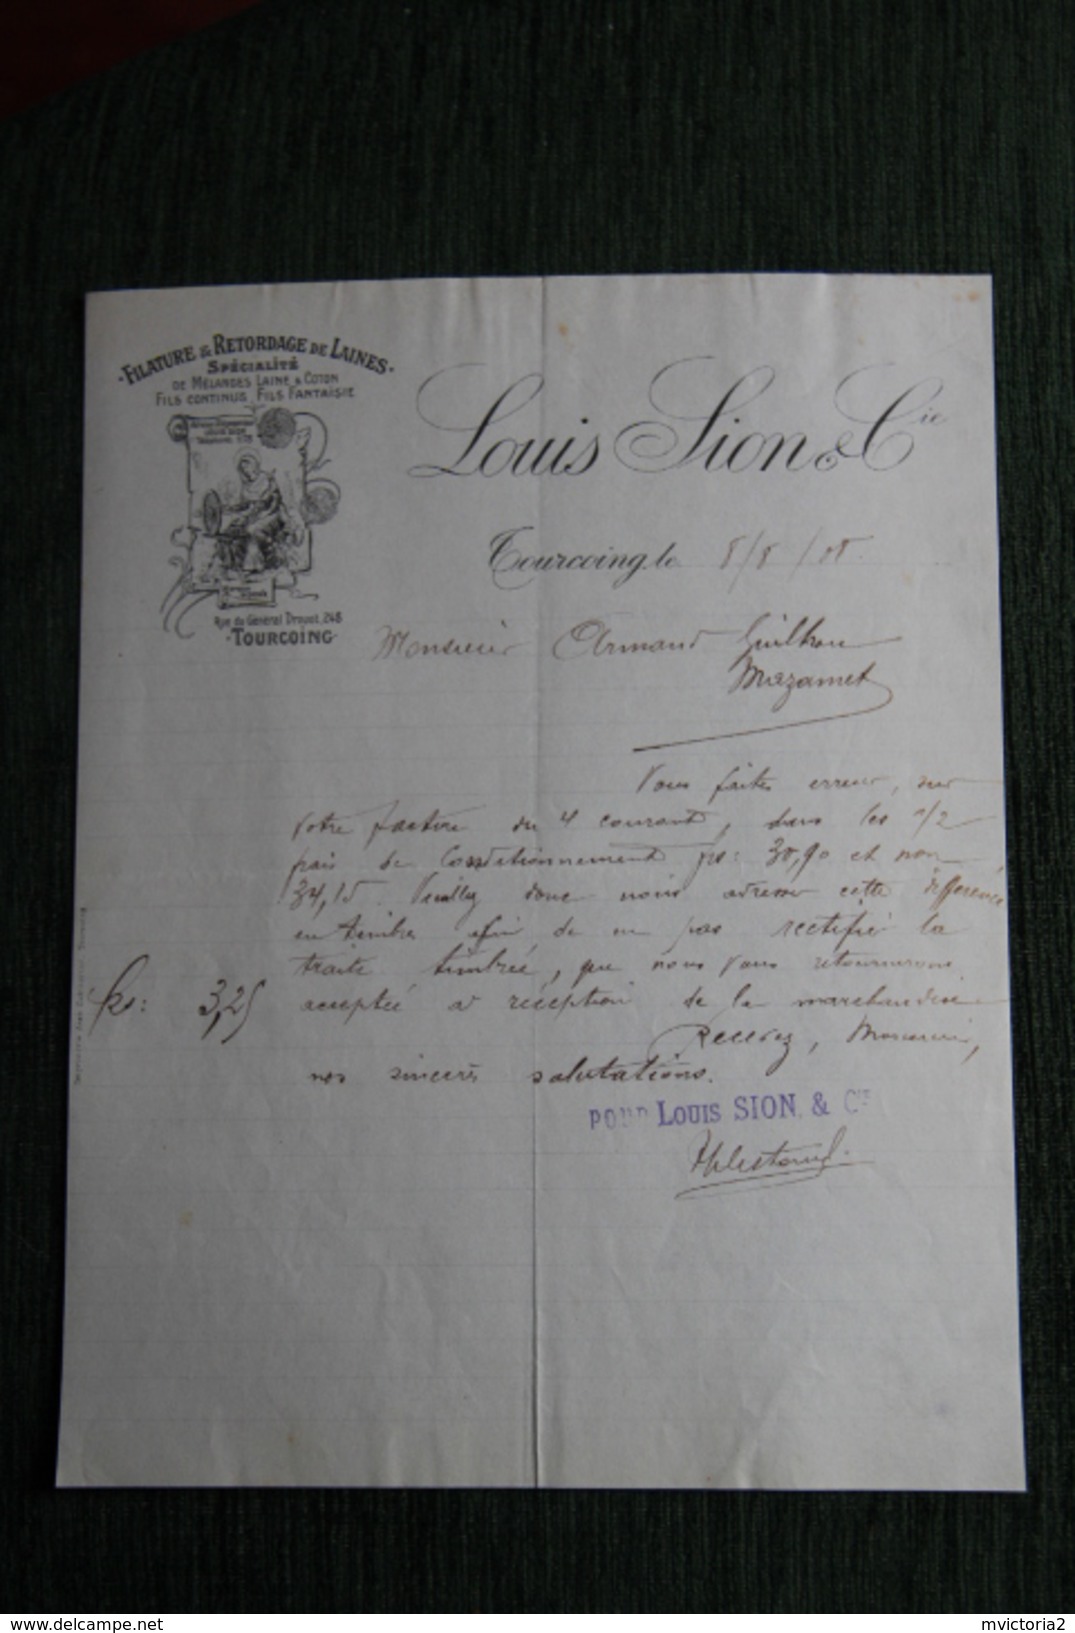 FILATURE & RETORDAGE DE LAINES
SPÉCIALITÉ
DE MÉLANGES LAINE & COTON
FILS CONTINUS, FILS FANTAISIE
Rue du Général Drouot, 248
TOURCOING
Louis Sion & Cie
Tourcoing, le 8/8/08
Monsieur Armand Guilhou
Mazamet
Vous faites erreur, sur
votre facture du 4 courant, dans les 1/2
frais de Conditionnement frs: 30,90 et non
34,15. Veuillez donc nous adresser cette différence
en timbres afin de ne pas rectifier la
traite timbrée, que nous vous retournerons
frs: 3,25 acceptée à réception de la marchandise
Recevez, Monsieur,
nos sincères salutations.
POUR LOUIS SION & CIE
delcampe.net
mvictoria2